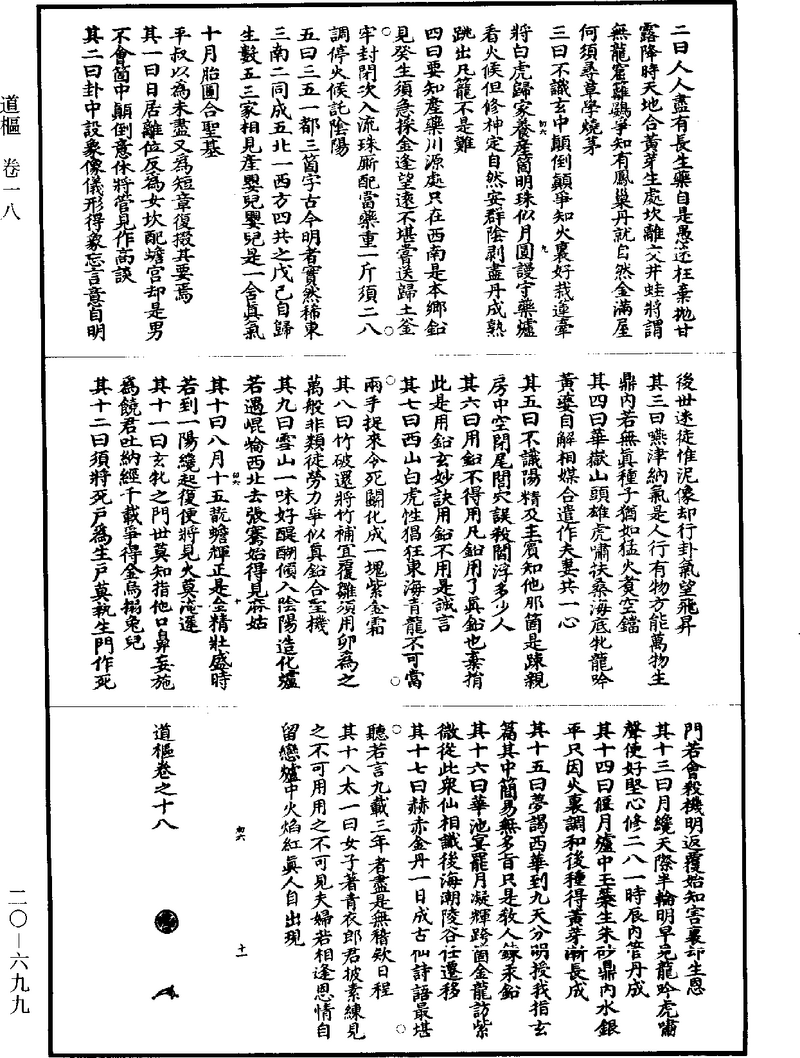 道樞 卷一八
二曰人人盡有長生藥自是愚迷枉棄拋甘
露降時天地合黃芽生處坎離交井蛙將謂
無龍窟籬鷃爭知有鳳巢丹就自然金滿屋
何須尋草學燒茅
三曰不識玄中顛倒顛爭知火裏好栽蓮牽
將白虎歸家養產箇明珠似月圓謾守藥爐
看火候但修神定自然安群陰剥盡丹成熟
跳出凡籠不是難
四曰要知產藥川源處只在西南是本鄉鉛
見癸生須急採金逢望遠不堪嘗送歸土釜
牢封閉次入流珠廝配當藥重一斤須二八
調停火候託陰陽
五曰三五一都三箇字古今明者實然稀東
三南二同成五北一西方四共之戊己自歸
生數五三家相見產嬰兒嬰兒是一含真氣
十月胎圓合聖基
平叔以為未盡又為短章復掇其要焉
其一曰日居離位反為女坎配蟾宮却是男
不會箇中顛倒意休將管見作高談
其二曰卦中設象像儀形得象忘言意自明
後世迷徒惟泥像却行卦氣望飛昇
其三曰嚥津納氣是人行有物方能萬物生
鼎內若無真種子猶如猛火煑空鐺
其四曰華嶽山頭雄虎嘯扶桑海底牝龍吟
黃婆自解相媒合遣作夫妻共一心
其五曰不識陽精及主賓知他那箇是踈親
房中空閉尾閭穴誤殺閻浮多少人
其六曰用鉛不得用凡鉛用了真鉛也棄捐
此是用鉛玄妙訣用鉛不用是誠言
其七曰西山白虎性猖狂東海青龍不可當
兩手捉來令死鬭化成一塊紫金霜
其八曰竹破還將竹補宜覆雞須用卵為之
萬般非類徒勞力爭似真鉛合聖機
其九曰雪山一味好醍醐傾入陰陽造化爐
若過崐崘西北去張騫始得見麻姑
其十曰八月十五翫蟾輝正是金精壯盛時
若到一陽纔起復便將見火莫淹遲
其十一曰玄牝之門世莫知指他口鼻妄施
為饒君吐納經千載爭得金烏搦兔兒
其十二曰須將死戶為生戶莫執生門作死
門若會殺機明返覆始知害裏却生恩
其十三曰月纔天際半輪明早見龍吟虎嘯
聲便好堅心修二八一時辰內管丹成
其十四曰偃月爐中玉蘂生朱砂鼎內水銀
平只因火裏調和後種得黃芽漸長成
其十五曰夢謁西華到九天分明授我指玄
篇其中簡易無多旨只是教人錬汞鉛
其十六曰華池宴罷月凝輝跨箇金龍訪紫
微從此衆仙相識後海潮陵谷任遷移
其十七曰赫赤金丹一日成古仙詩語最堪
聽若言九載三年者盡是無稽欵日程
其十八太一曰女子著青衣郎君披素練見
之不可用用之不可見夫婦若相逢恩情自
留戀爐中火焰紅真人自出現
道樞卷之十八
二〇—六九九